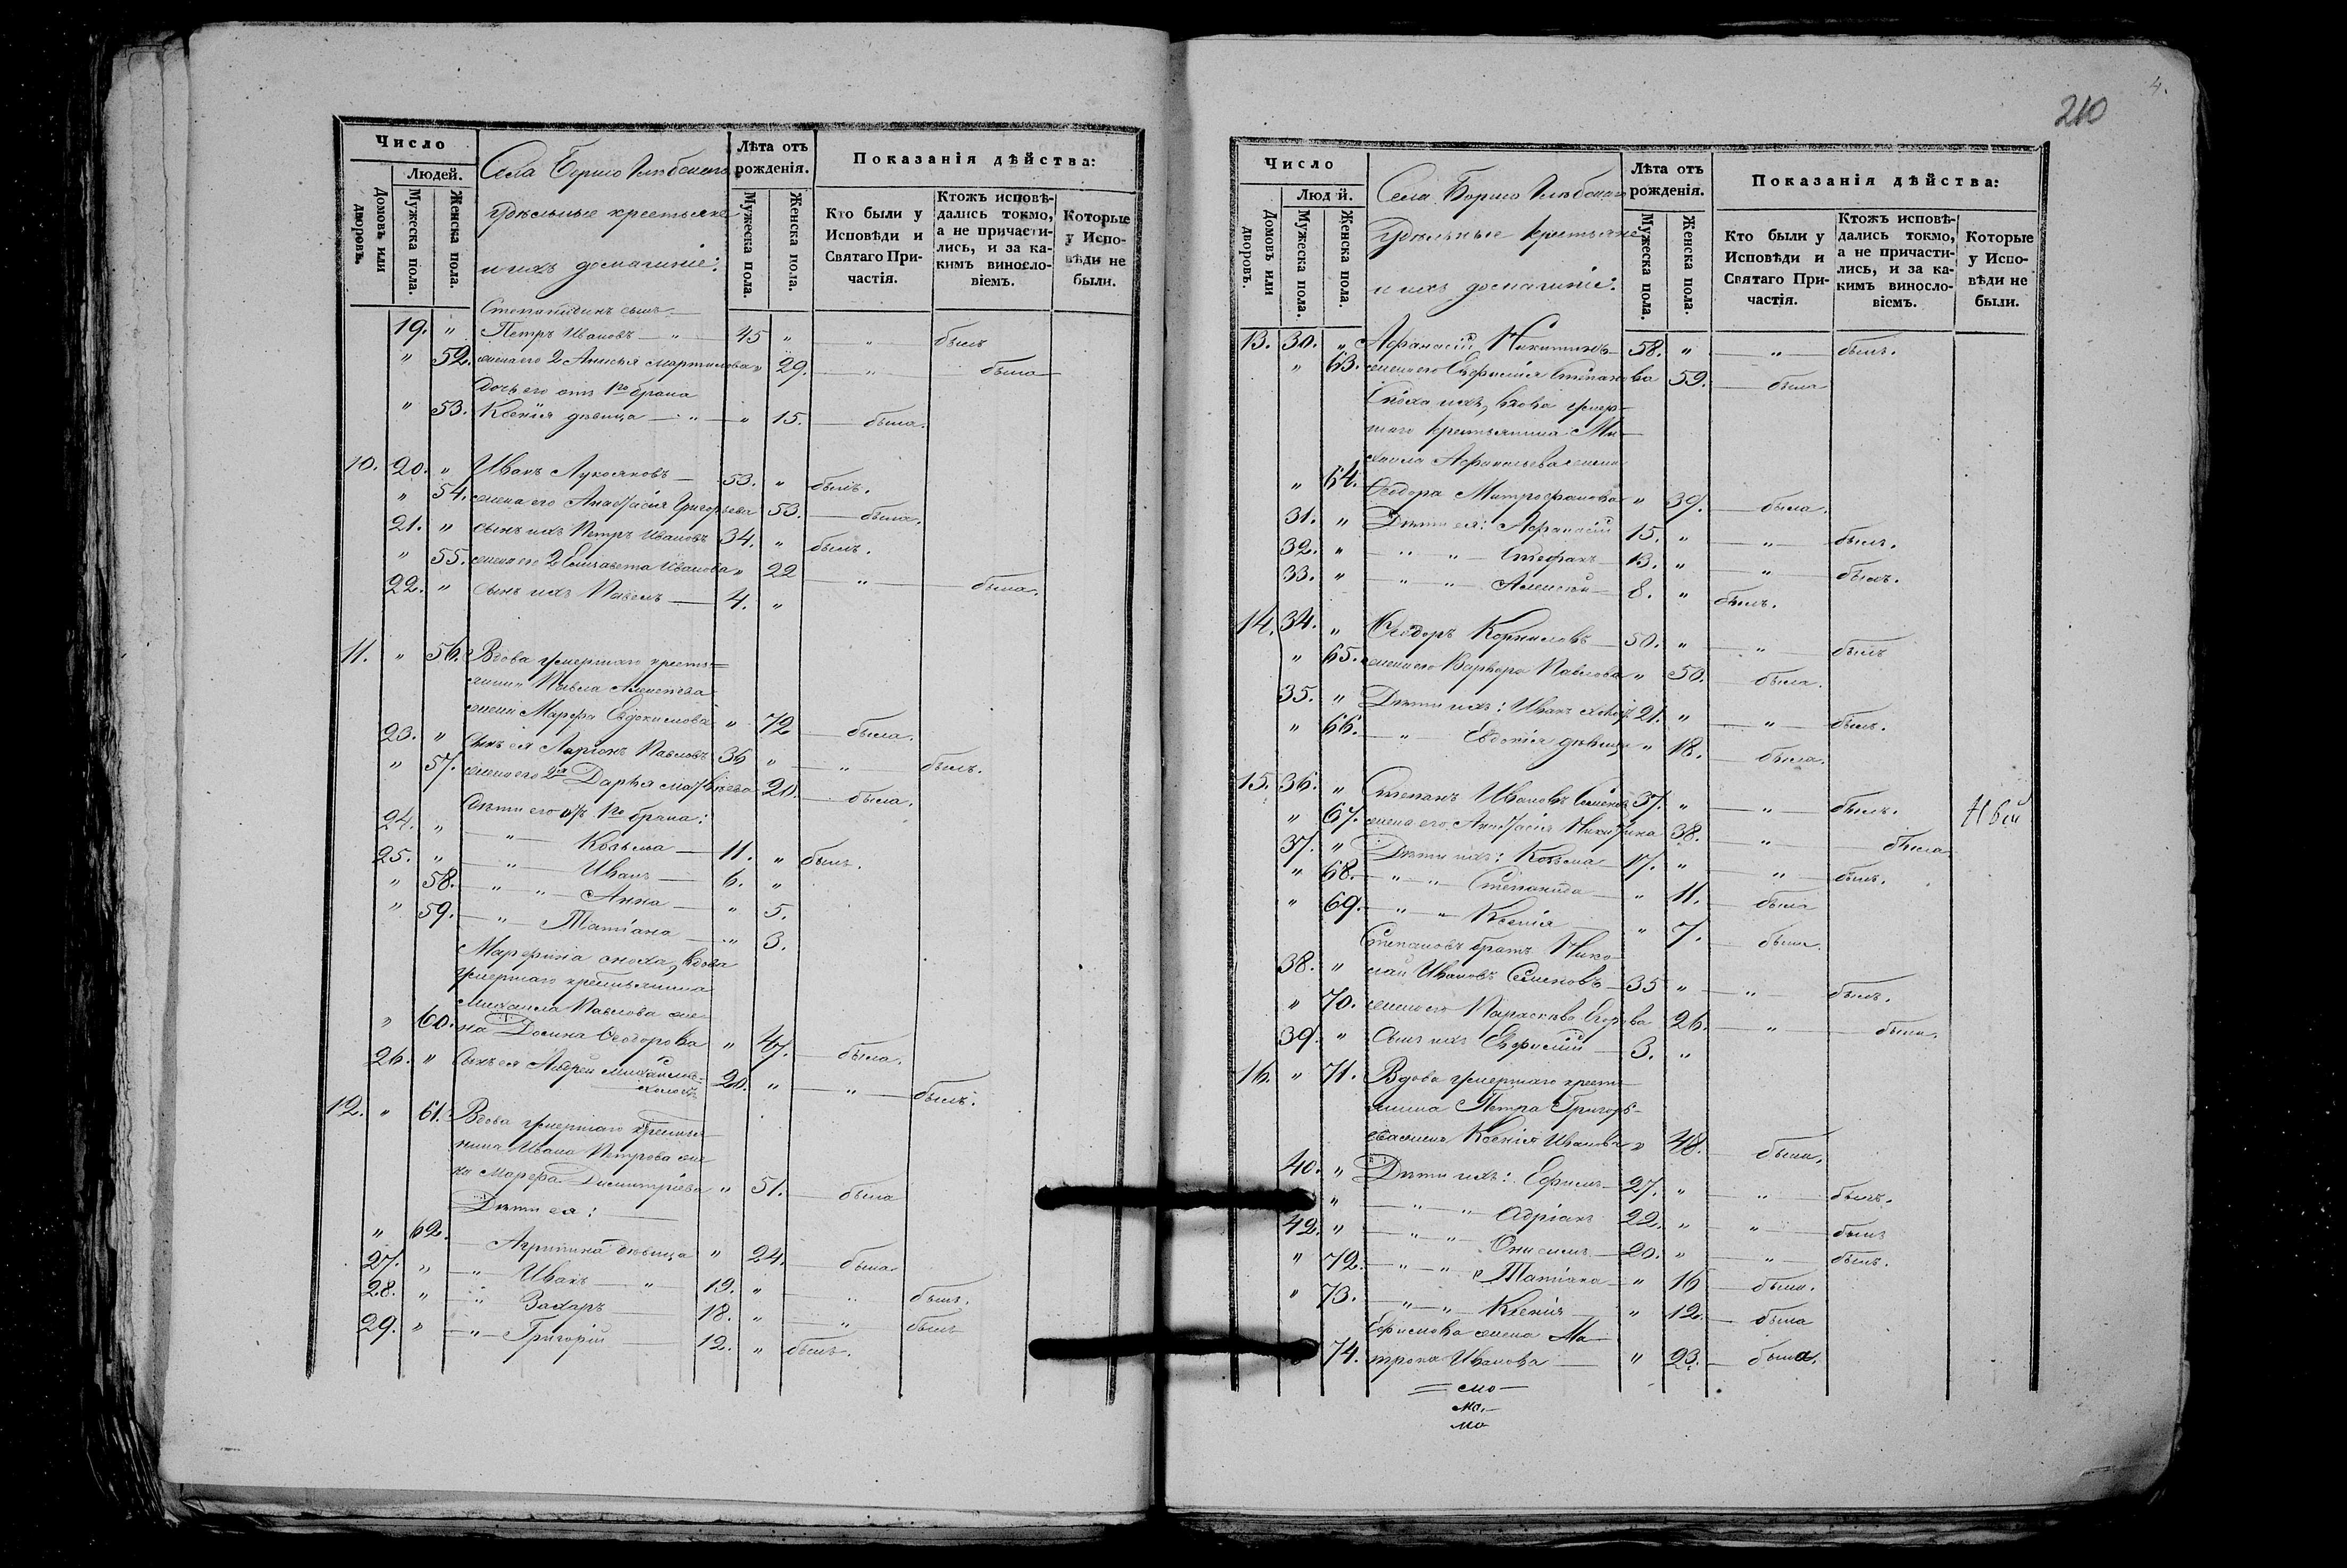 Число
Людей.
Домовъ или дворовъ.
Мужеска пола.
Женска пола.
Села Борисо Глѣбскаго
удѣльные крестьяне
и ихъ домашніе:
Лѣта отъ рожденія.
Мужеска пола.
Женска пола.
Показанія дѣйства:
Кто были у Исповѣди и Святаго Причастія.
Ктожъ исповѣдались токмо, а не причастились, и за какимъ винословіемъ.
Которые у Исповѣди не были.
Степанидинъ сынъ
19. " Петръ Ивановъ — " 45 " " былъ
" 52. жена его 2 Анисья Мартинова " 29. — " — была
Дочь его отъ 1го брака
" 53. Ксенія дѣвица — " — " 15. — была.
10. 20. " Иванъ Лукояновъ — 53. " былъ.
" 54. жена его Анастасія Григорьева 53. — была.
21. " сынъ ихъ Петръ Ивановъ 34. " былъ.
" 55. жена его 2 Елисавета Иванова " 22 — " — была.
22. " сынъ ихъ Павелъ — 4. "
11. " 56. Вдова умершаго кресть-
янина Павла Алексѣева
жена Марфа Евдокимова " 72 — была.
23. " Сынъ ея Ларіонъ Павловъ 36 " — " — былъ.
" 57. жена его 2я Дарья Матвѣева 20. — была.
Дѣти его отъ 1го брака:
24. " — " — Козьма — 11. " былъ.
25. " — " — Иванъ — 6. "
" 58. — " " — Анна — " 5.
" 59. — " — Татіана — " 3.
Марфина сноха, вдова
умершаго крестьянина
Михаила Павлова же-
" 60. на Домна Ѳеодорова " 47. — была.
26. " Сынъ ея Андрей Михайловъ
холостъ 20. " — " — былъ.
12. " 61. Вдова умершаго крестья-
нина Ивана Петрова же
на Марфа Димитріева " 51. — была
Дѣти ея: —
" 62. — Агрипина дѣвица " 24. — была.
27. " — " Иванъ — " 19. " — " — былъ.
28. " — " Захаръ — 18. " — " — былъ
29. " — " — Григорій — 12. " былъ.
4.
210
Число
Люд й.
Домовъ или дворовъ.
Мужеска пола.
Женска пола.
Села Борисо Глѣбскаго
Удѣльные крестьяне
и ихъ домашніе:
Лѣта отъ рожденія.
Мужеска пола.
Женска пола.
Показанія дѣйства:
Кто были у Исповѣди и Святаго Причастія.
Ктожъ исповѣдались токмо, а не причастились, и за какимъ винословіемъ.
Которые у Исповѣди не были.
13. 30. " Афанасій Никитинъ 58. " — " — былъ.
" 63. жена его Евфимія Степанова 59. — была
Сноха ихъ, вдова умер-
шаго крестьянина Ми-
хаила Афанасьева жена
" 64. Ѳеодора Митрофанова " 39. — была.
31. " Дѣти ея: Афанасій 15. " — " — былъ.
32. " — " " — Стефанъ — 13. " — " — былъ.
33. " — " " — Алексѣй — 8. " былъ.
14. 34. " Ѳеодоръ Корниловъ — 50. " — " — былъ
" 65. жена его Варвара Павлова " 50. — была.
35. " Дѣти ихъ: Иванъ холос. 21. " — " — былъ.
" 66. — " — Евдокія дѣвица " 18. — была.
15. 36. " Степанъ Ивановъ Семеновъ 37. " — " — былъ.
" 67. жена его Анастасія Никитина 38. — " — была.
37. " Дѣти ихъ: Козьма — 17. " — " — былъ.
" 68. — " " — Степанида — " 11. — была
" 69. — " " — Ксенія — " 7. — была.
Степановъ братъ Нико-
38. " лай Ивановъ Семеновъ — 35 " — " — былъ.
" 70. жена его Параскева Егорова 26. — " — была.
39. " Сынъ ихъ Евфимій — 3. "
16. " 71. Вдова умершаго кресть-
янина Петра Григорь-
ева жена Ксенія Иванова " 48. — была.
40. " Дѣти ихъ: Ефимъ — 27. " — " — былъ.
" — " " — Адріанъ 22. " — " — былъ
42. " — " " — Онисимъ — 20. " — " — былъ.
" 72. — " " — Татіана — " 16 — была.
" 73. — " " — Ксенія — " 12. — была
Ефимова жена Ма-
74. трона Иванова — " 23. — была.